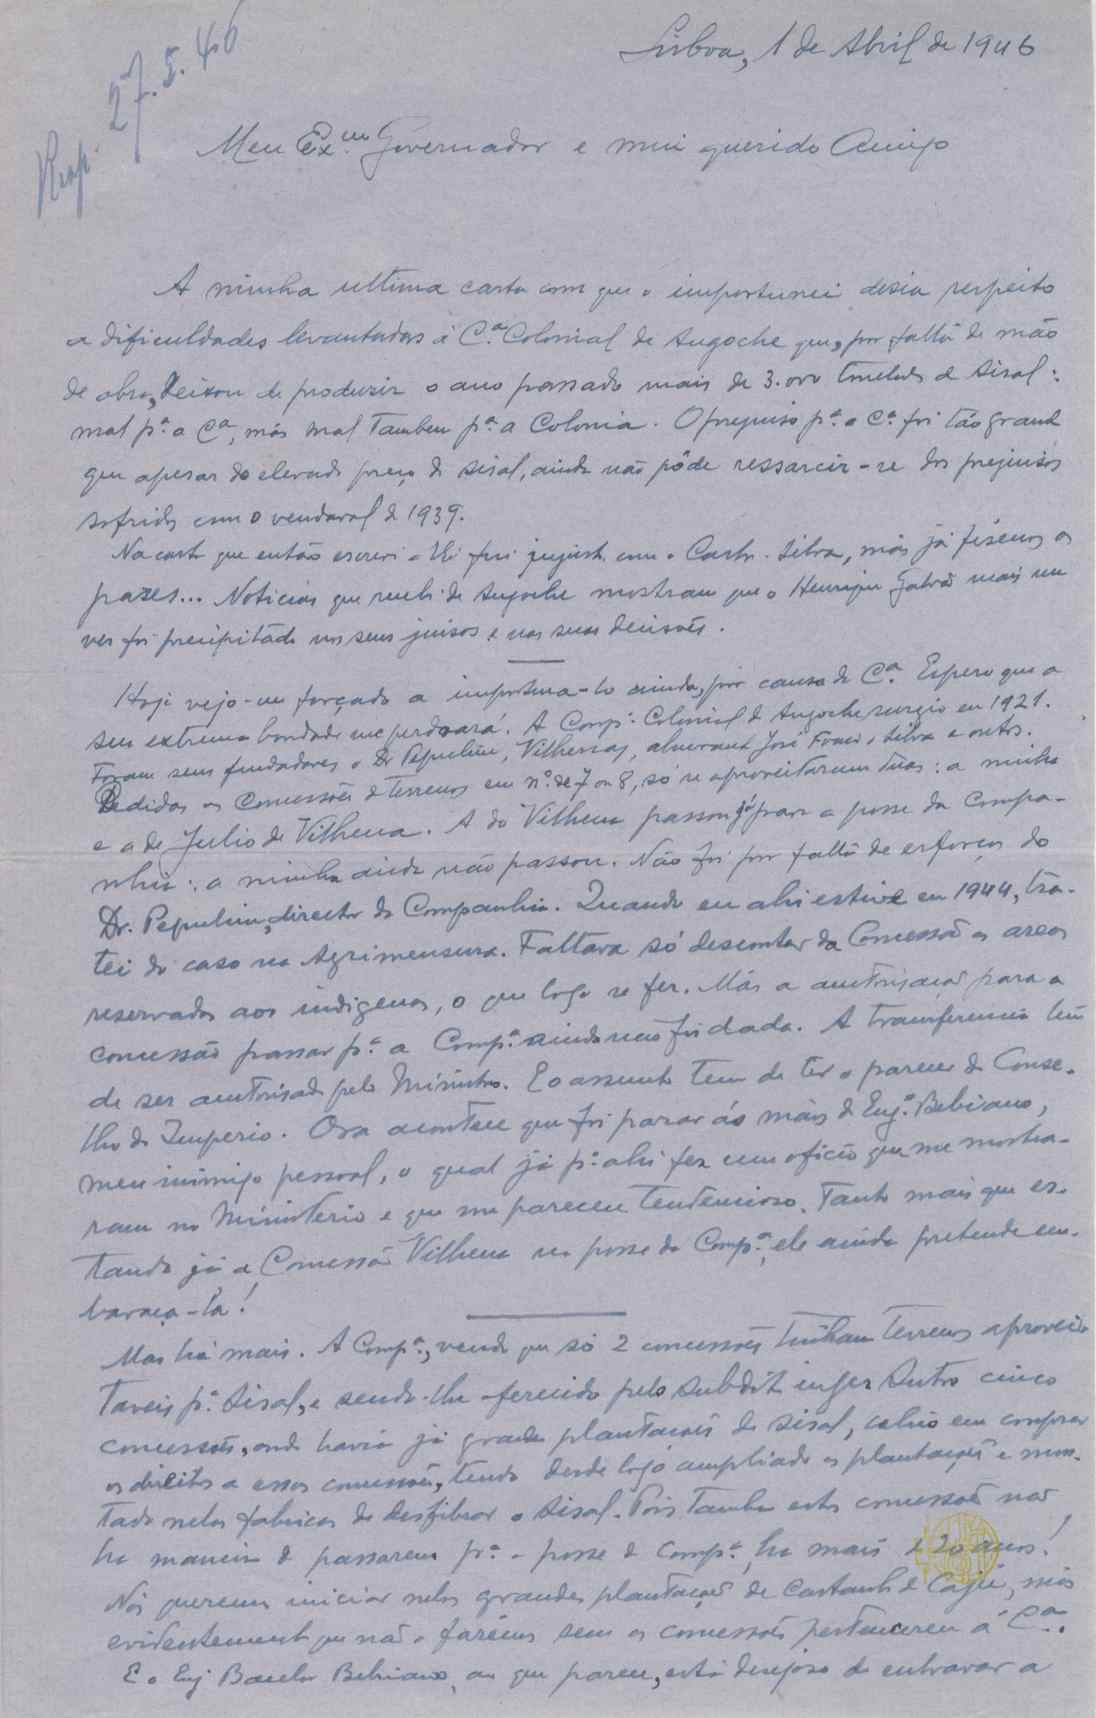 Resp. 27.5.46
Lisboa, 1 de Abril de 1946
Meu Ex.mo Governador e meu querido Amigo
A minha ultima carta com que o importunei dizia respeito
a dificuldades levantadas á C.ª Colonial de Angoche que, por falta de mão
de obra, deixou de produzir o ano passado mais de 3.000 toneladas de Sisal:
mal p.ª a Cª, más mal tambem p.ª a Colonia. O prejuiso p.ª a Cª foi tão grande
que apesar do elevado preço do sisal, ainda não pôde ressarcir-se dos prejuisos
sofridos com o vendaval de 1939.
Na carta que então escrevi a fui injusto com o Castro e Silva, más já fizémos as
pazes... Noticias que recebi de Angoche mostram que o Henrique Galvão mais uma
vez foi precipitado nos seus juisos e nas suas decisões.
Hoje vejo-me forçado a importuna-lo ainda, por causa da Cª. Espero que a
sua extrema bondade me perdoará. A Comp.ª Colonial de Angoche surgiu em 1921.
Foram seus fundadores o Dr Pepulim, Vilhenas, almirante José Franco e Silva e outros.
Pedidas as Concessões de terrenos em nº. de 7 ou 8, só se aproveitaram duas: a minha
e a de Julio de Vilhena. A do Vilhena passou já para a posse da Compa-
nhia: a minha ainda não passou. Não foi por falta de esforços do
Dr. Pepulim, director da Companhia. Quando eu ahi estive em 1944, tra-
tei do caso na Agrimensura. Faltava só descontar da Concessão as areas
reservadas aos indigenas, o que logo se fez. Más a autorisação para a
concessão passar p.ª a Comp.ª ainda não foi dada. A transferencia tem
de ser autorisada pelo Ministro. E o assunto tem de ter o parecer do Conse-
lho do Imperio. Ora acontece que foi parar ás mãos do Eng.º Bebiano,
meu inimigo pessoal, o qual já p.ª ahi fez um oficio que me mostra-
ram no Ministerio e que me pareceu tendencioso. Tanto mais que es-
tando já a Concessão Vilhena na posse da Comp.ª, ele ainda pretende em-
baraça-la!
Mas há mais. A Comp.ª, vendo que só 2 concessões tinham terrenos aprovei-
taveis p.ª Sisal, e sendo-lhe oferecido pelo subdito inglez Sutro cinco
concessões, onde havia já grandes plantações de sisal, em comprar
os direitos a essas concessões, tendo desde logo ampliado as plantações e mon-
tado nelas fabricas de desfibrar o Sisal. Pois tambem estas concessões não
ha maneira de passarem p.ª a posse da Comp.ª, ha mais de 20 anos!
Nós queremos iniciar nelas grandes plantações de Castanha de Cajú, más
evidentemente que não o farêmos sem as concessões pertencerem á Cª.
E o Eng Bacelar Bebiano, ao que parece, está desejoso de entravar a